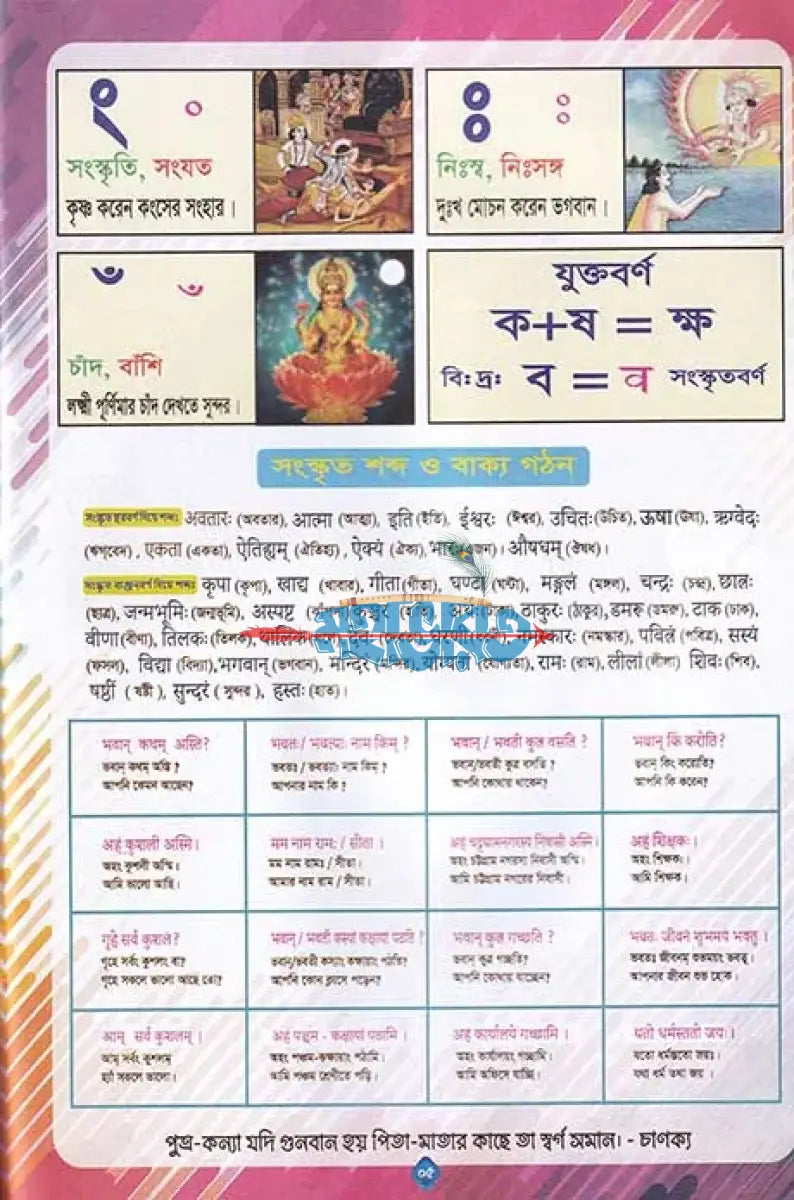 ং ०
সংস্কৃতি, সংযত
কৃষ্ণ করেন কংসের সংহার।
ঃ ः
নিঃস্ব, নিঃসঙ্গ
দুঃখ মোচন করেন ভগবান।
ঁ ँ
চাঁদ, বাঁশি
লক্ষ্মী পূর্ণিমার চাঁদ দেখতে সুন্দর।
যুক্তবর্ণ
ক+ষ = ক্ষ
বিঃদ্রঃ ব = व সংস্কৃতবর্ণ
সংস্কৃত শব্দ ও বাক্য গঠন
সংস্কৃত স্বরবর্ণ দিয়ে শব্দঃ अवतारः (অবতার), आत्मा (আত্মা), इति (ইতি), ईश्वरः (ঈশ্বর), उचितः(উচিত), ऊषा (উষা), ऋग्वेदः
(ঋগ্বেদ), एकता (একতা), ऐतिह्यम् (ঐতিহ্য), ऐक्यं (ঐক্য), औषधम् (ঔষধ)।
সংস্কৃত ব্যঞ্জনবর্ণ দিয়ে শব্দঃ कृपा (কৃপা), खाद्य (খাবার), गीता (গীতা), घण्टा (ঘণ্টা), मङ्गलं (মঙ্গল), चन्द्रः (চন্দ্র), छात्रः
(ছাত্র), जन्मभूमिः (জন্মভূমি), अस्पष्ट ठाकुरः (ঠাকুর), डमरू (ডমরু), टाक (ঢাক),
वीणा (বীণা), तिलकः (তিলক), (নমস্কার), पवित्रं (পবিত্র), सस्यं
(ফসল), विद्या (বিদ্যা), भगवान् (ভগবান), मन्दिरं रामः (রাম), लीलां (লীলা) शिवः (শিব),
षष्ठीं (ষষ্ঠী), सुन्दरं (সুন্দর), हस्तः (হাত)।
মহাভারত
भवान् कथम् अस्ति?
ভবান্ কথম্ অস্তি?
আপনি কেমন আছেন?
भवतः/ भवत्याः नाम किम् ?
ভবতঃ/ ভবত্যাঃ নাম কিম্?
আপনার নাম কি?
भवान् / भवती कुत्र वसति ?
ভবান্/ভবতী কুত্র বসতি?
আপনি কোথায় থাকেন?
भवान् किं करोति?
ভবান্ কিং করোতি?
আপনি কি করেন?
अहं कुशली अस्मि।
অহং কুশলী অস্মি।
আমি ভালো আছি।
मम नाम रामः / सीता ।
মম নাম রামঃ / সীতা।
আমার নাম রাম / সীতা।
अहं चट्टग्रामनगरस्य निवासी अस्मि।
অহং চট্টগ্রাম নগরস্য নিবাসী অস্মি।
আমি চট্টগ্রাম নগরের নিবাসী।
अहं शिक्षकः।
অহং শিক্ষকঃ।
আমি শিক্ষক।
गृहे सर्वं कुशलं?
গৃহে সর্বং কুশলং বা?
গৃহে সকলে ভালো আছে তো?
भवान् / भवती कस्यां कक्षायां पठति ?
ভবান্/ভবতী কস্যাং কক্ষায়াং পঠতি?
আপনি কোন ক্লাসে পড়েন?
भवान् कुत्र गच्छति ?
ভবান্ কুত্র গচ্ছতি?
আপনি কোথায় যাচ্ছেন?
भवतः जीवनं शुभमयं भवतु ।
ভবতঃ জীবনম্ শুভময়ং ভবতু।
আপনার জীবন শুভ হোক।
आम् सर्वं कुशलम् ।
আম্ সর্বং কুশলম্
হ্যাঁ সকলে ভালো।
अहं पञ्चम - कक्षायां पठामि ।
অহং পঞ্চম-কক্ষায়াং পঠামি।
আমি পঞ্চম শ্রেণীতে পড়ি।
अहं कार्यालयं गच्छामि ।
অহং কার্যালয়ং গচ্ছামি।
আমি অফিসে যাচ্ছি।
यतो धर्मस्ततो जयः।
যতো ধর্মস্ততো জয়ঃ।
যথা ধর্ম তথা জয়।
পুত্র-কন্যা যদি গুনবান হয় পিতা-মাতার কাছে তা স্বর্গ সমান। - চাণক্য
০৫